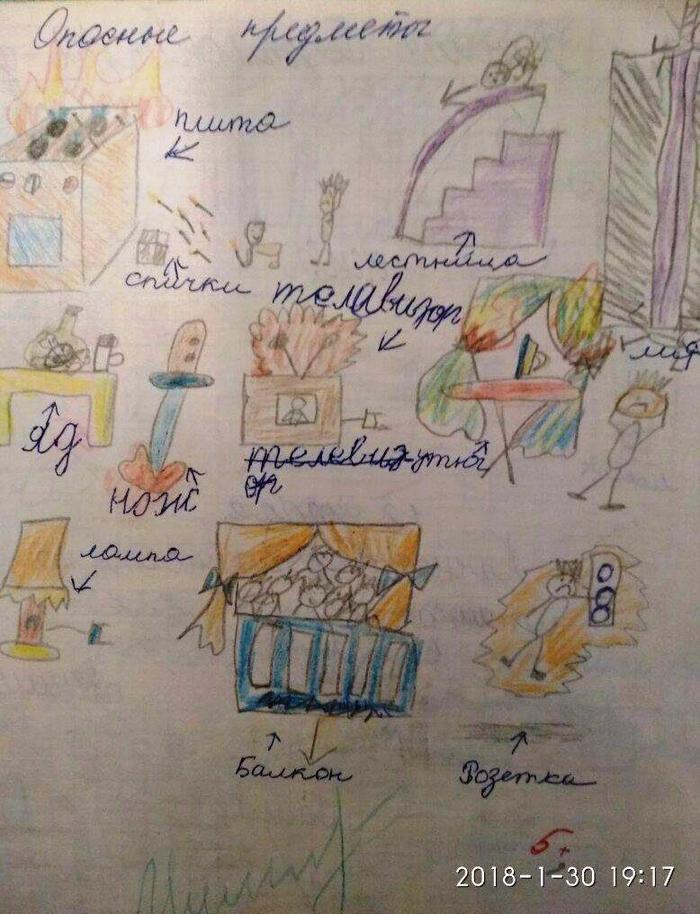 Опасные предметы
плита
спички
лестница
телавизор
яд
нож
утюг
лампа
Балкон
Розетка
5+
2018-1-30 19:17